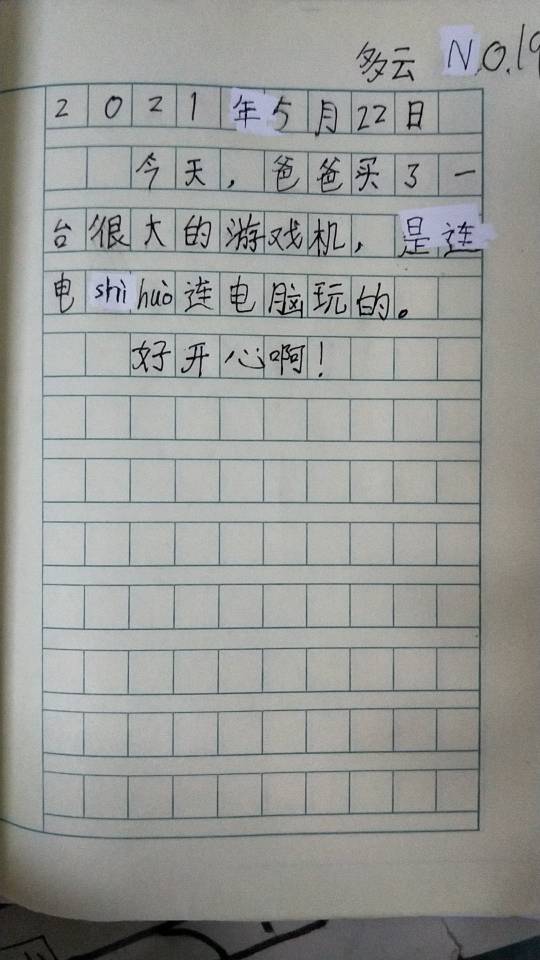 多云 N.O.19
2021年5月22日
今天，爸爸买了一
台很大的游戏机，是连
电shì huò连电脑玩的。
好开心啊！